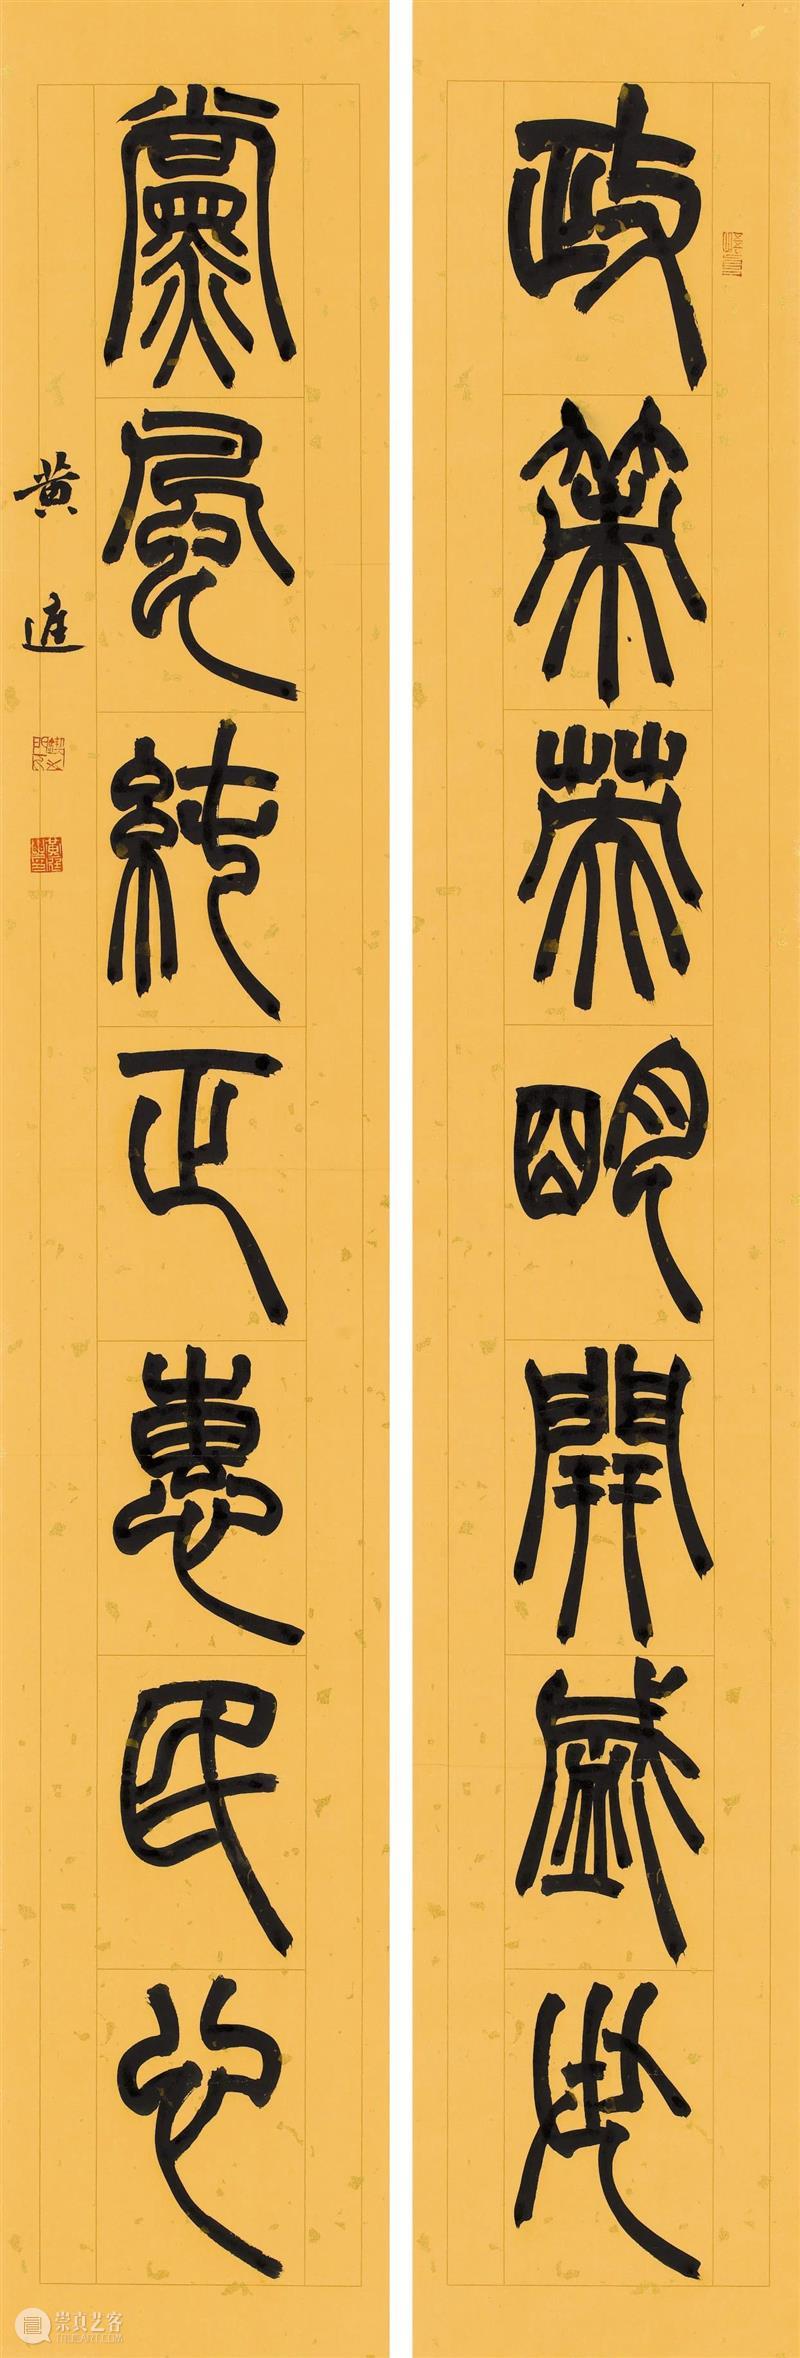 政策英明開盛世
黨風純正惠民心
黄進
崇真艺客
TRUEART.COM